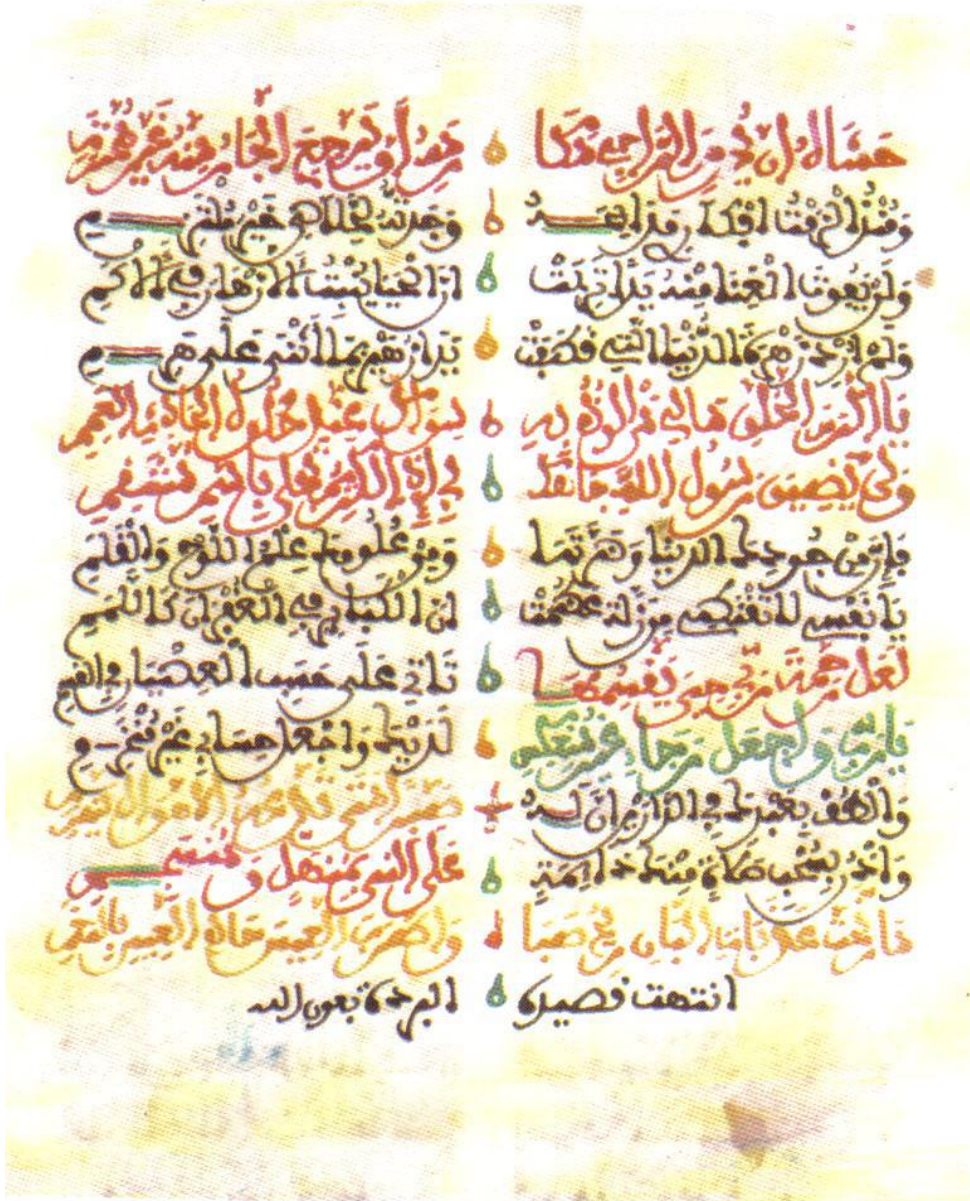 حشاه ان يحرم الراجي مكا رمه أو يرجع الجار منه غير محترم
ومنذ الزمت افكاري مدايحه وجدته لخلاصي خير ملتزم
ولن يفوت الغنا منه يدا تربت ان الحيا ينبت الازهار في الاكم
ولم ارد زهرة الدنيا التي قطفت يدا زهير بما اثنى على هرم
يا اكرم الخلق مالي من الوذ به سواك عند حلول الحادث العمم
ولن يضيق رسول الله جاهك بي إذا الكريم تحلى باسم منتقم
فإن من جودك الدنيا وضرتها ومن علومك علم اللوح والقلم
يا نفس لا تقنطي من زلة عظمت ان الكبائر في الغفران كاللمم
لعل رحمة ربي حين يقسمها تاتي على حسب العصيان في القسم
يا رب واجعل رجاءي غير منعكس لديك واجعل حسابي غير منخرم
والطف بعبدك في الدارين ان له صبرا متى تدعه الاهوال ينهزم
واذن لسحب صلاة منك دائمة على النبي بمنهل ومنسجم
ما رنحت عذبات البان ريح صبا واطرب العيس حادي العيس بالنغم
انتهت قصيدة البردة بعون الله